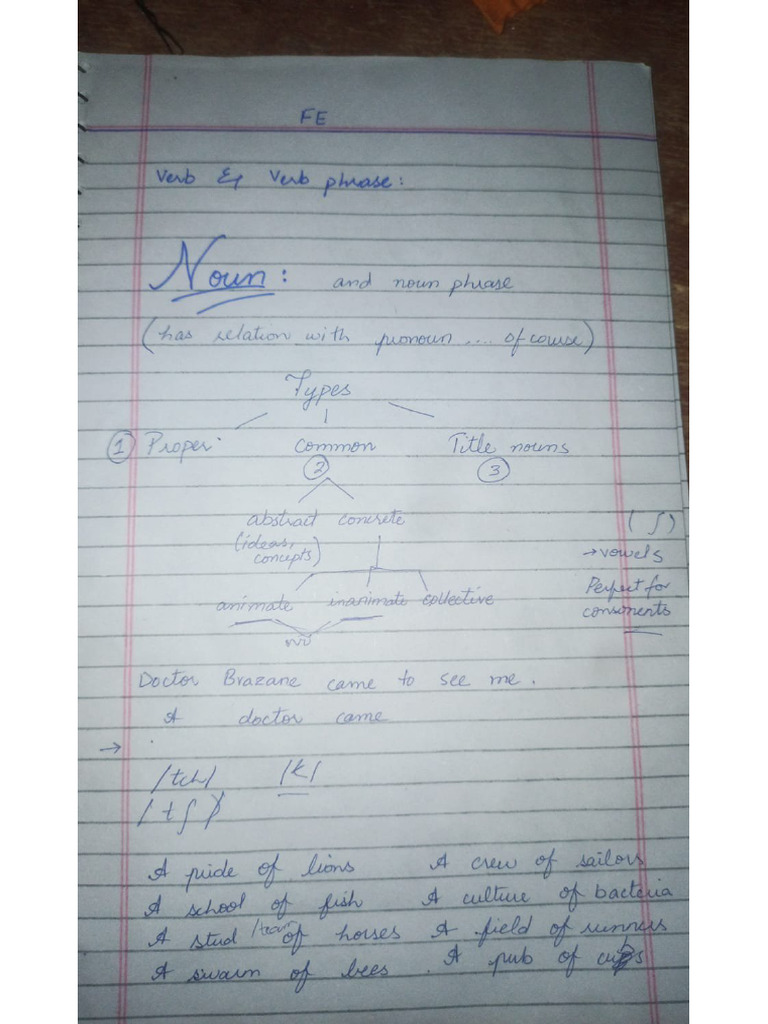 FE
Verb & Verb phrase:
Noun: and noun phrase
(has relation with pronoun .... of course)
Types
1 Proper. Common Title nouns
2 3
abstract concrete
(ideas,
concepts)
( ʃ )
→ vowels
Perfect for
consonents
animate inanimate collective
Doctor Brazane came to see me.
A doctor came
→
/tch/ /k/
/tʃ/
A pride of lions A crew of sailors
A school of fish A culture of bacteria
A stud /team of horses A field of runners
A swarm of bees A pub of